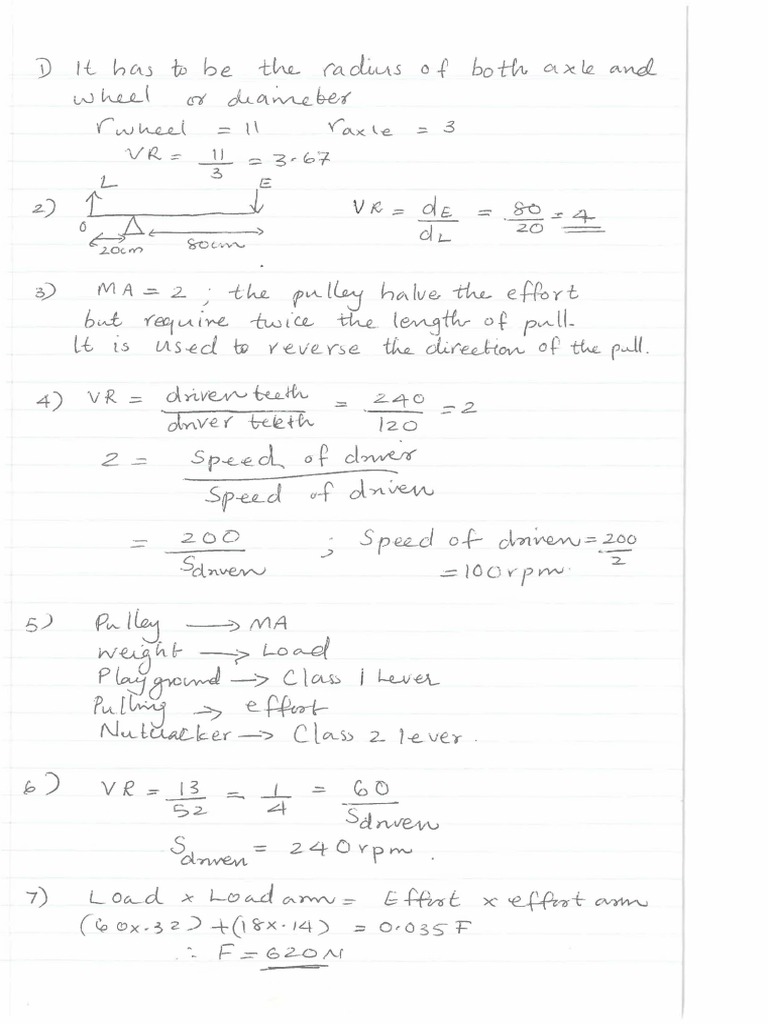 1) It has to be the radius of both axle and
wheel or diameter
rwheel = 11 raxle = 3
VR = 11/3 = 3.67
L E
2) VR = dE/dL = 80/20 = 4
0
20cm 80cm
3) MA = 2 ; the pulley halve the effort
but require twice the length of pull.
It is used to reverse the direction of the pull.
4) VR = driven teeth/driver teeth = 240/120 = 2
2 = Speed of driver/Speed of driven
= 200/Sdriven ; Speed of driven = 200/2
= 100rpm.
5) Pulley → MA
weight → Load
Playground → Class 1 Lever
Pulling → effort
Nutcracker → Class 2 lever.
6) VR = 13/52 = 1/4 = 60/Sdriven
Sdriven = 240rpm.
7) Load x Load arm = Effort x effort arm
(60x.32) + (18x.14) = 0.035F
∴ F = 620N